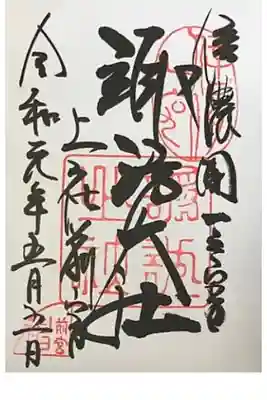 信濃國一之宮
諏訪大社
上社前宮
令和元年五月五日
前宮